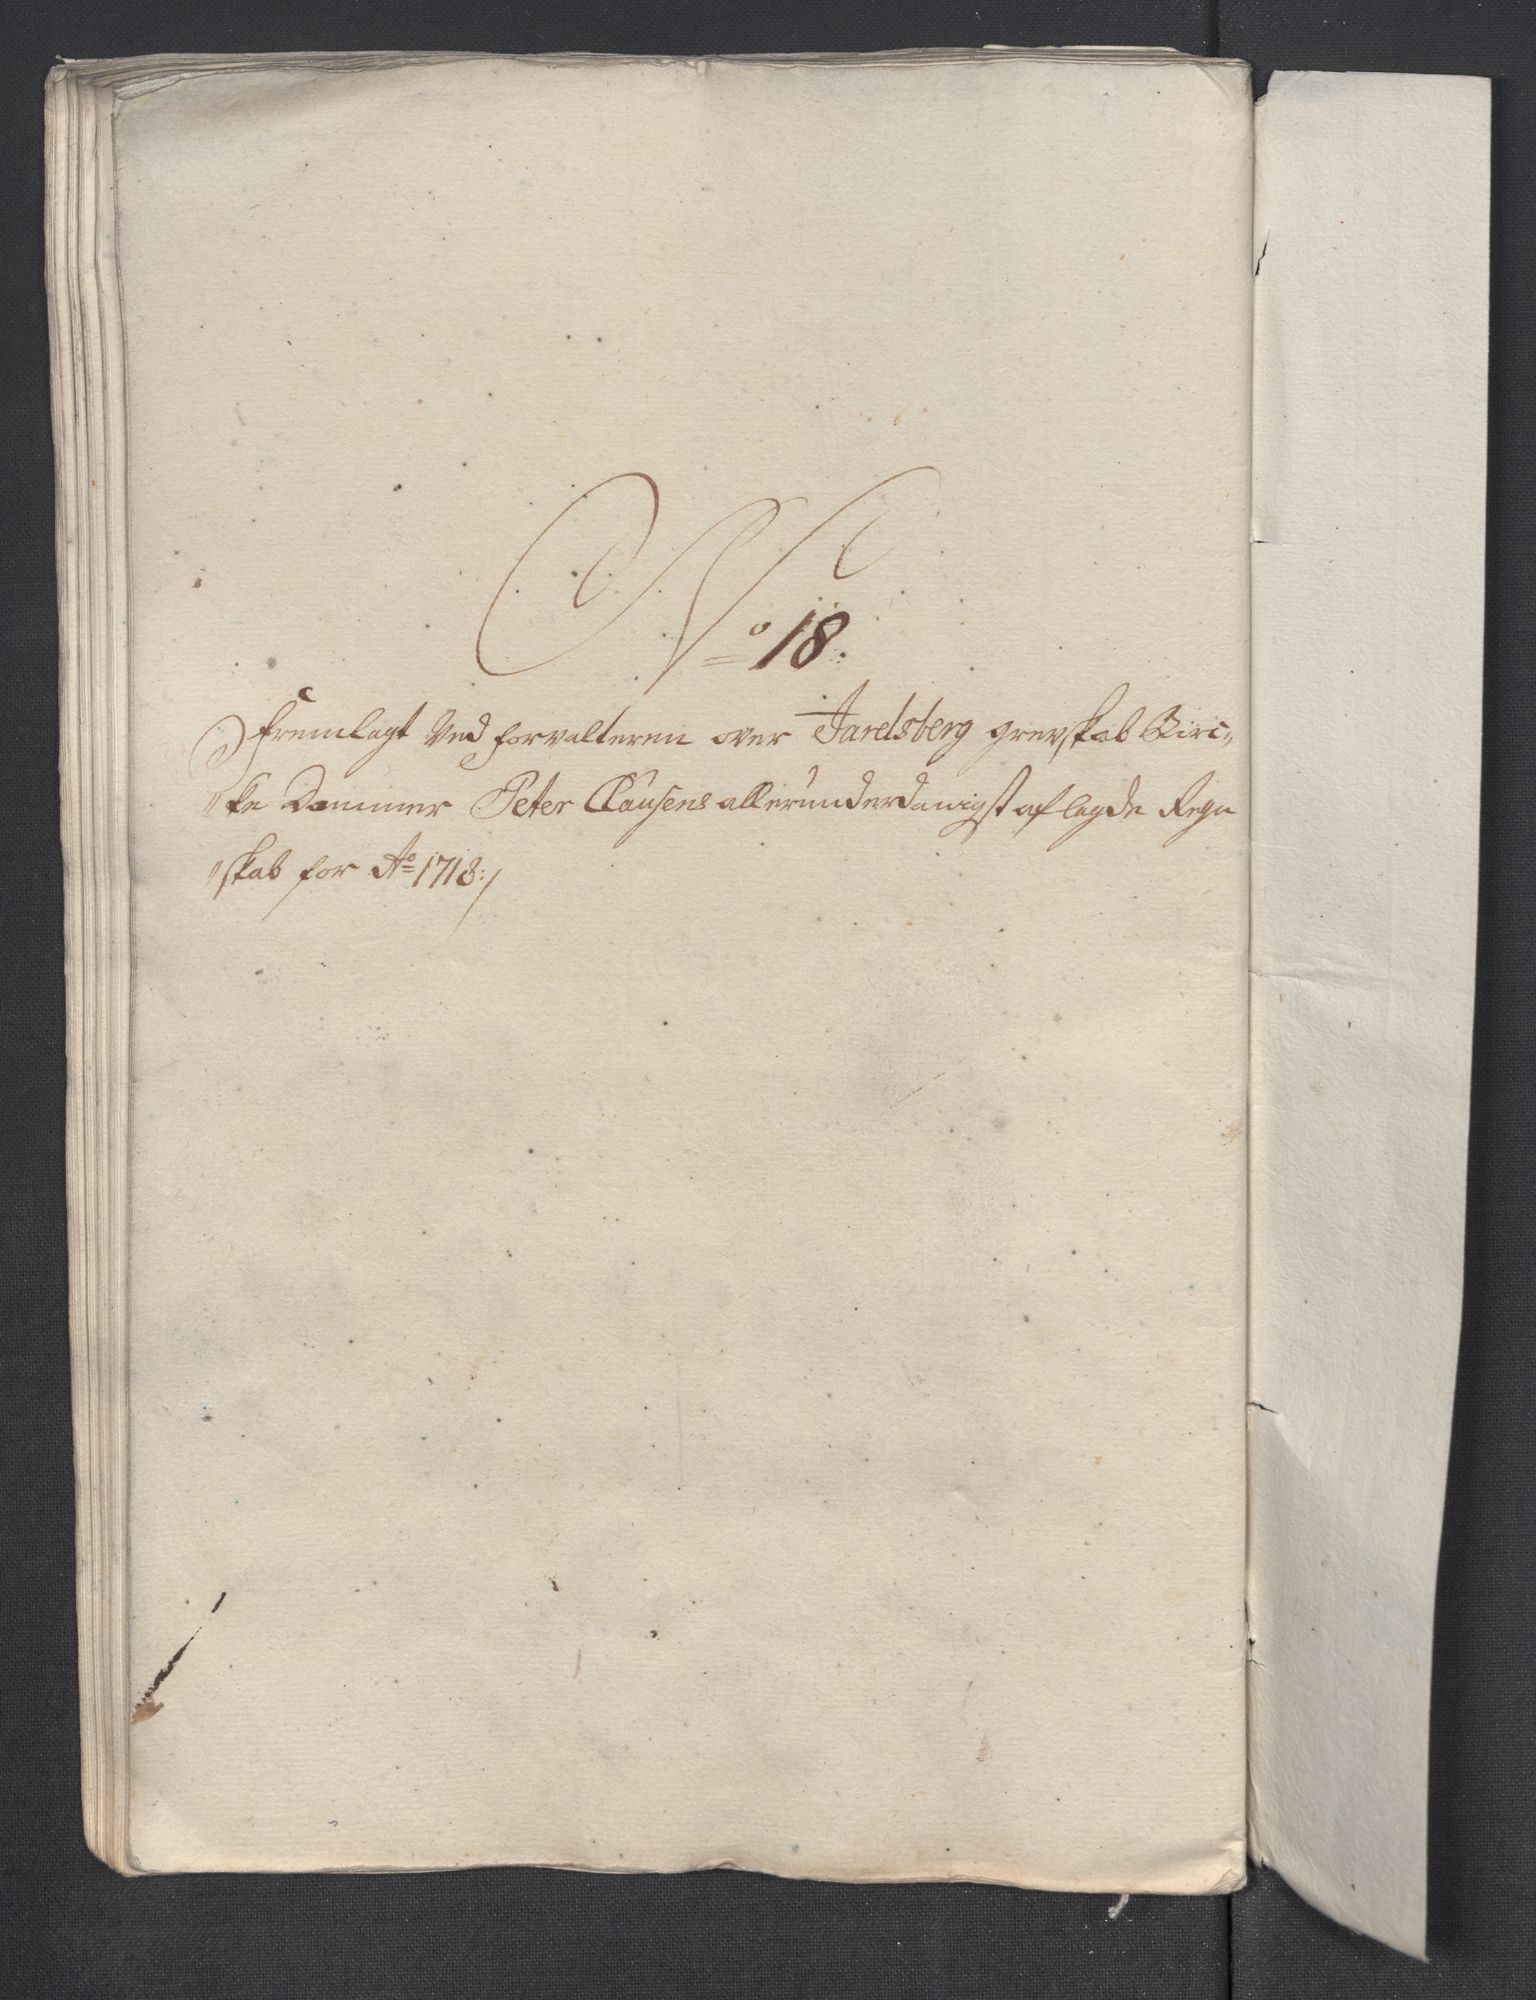 No 18.
Fremlagt Ved forvalteren over Jarelsberg grevskab Biric„
„ke Dommer Peter Clausens allerunderdanigst aflagde Regn
„skab for Ao 1718:/